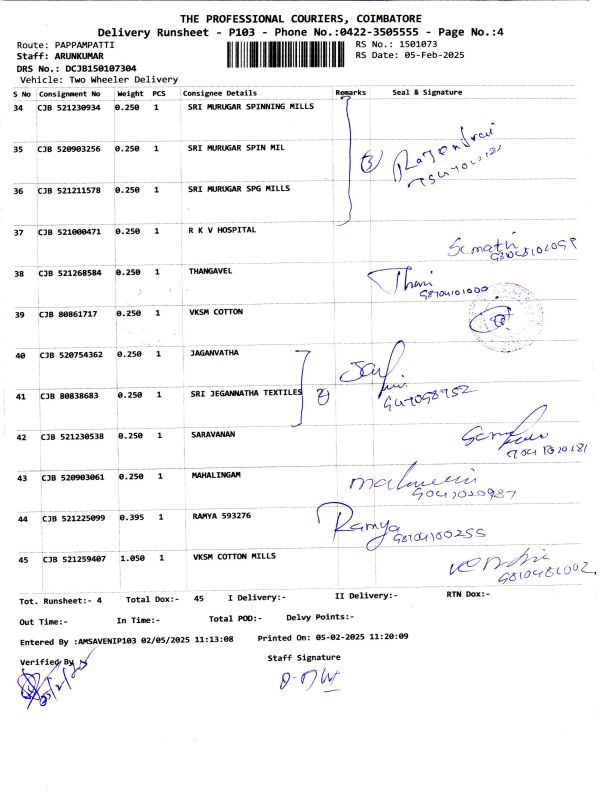 THE PROFESSIONAL COURIERS, COIMBATORE
Delivery Runsheet - P103 - Phone No.:0422-3505555 - Page No.:4
Route: PAPPAMPATTI
RS No.: 1501073
Staff: ARUNKUMAR
RS Date: 05-Feb-2025
DRS No.: DCJB150107304
Vehicle: Two Wheeler Delivery
S No Consignment No Weight PCS Consignee Details Remarks Seal & Signature
34 CJB 521230934 0.250 1 SRI MURUGAR SPINNING MILLS
35 CJB 520903256 0.250 1 SRI MURUGAR SPIN MIL
3
36 CJB 521211578 0.250 1 SRI MURUGAR SPG MILLS
37 CJB 521000471 0.250 1 R K V HOSPITAL
38 CJB 521268584 0.250 1 THANGAVEL
39 CJB 80861717 0.250 1 VKSM COTTON
40 CJB 520754362 0.250 1 JAGANVATHA
41 CJB 80838683 0.250 1 SRI JEGANNATHA TEXTILES 2
42 CJB 521230538 0.250 1 SARAVANAN
43 CJB 520903061 0.250 1 MAHALINGAM
44 CJB 521225099 0.395 1 RAMYA 593276 Ramya
45 CJB 521259407 1.050 1 VKSM COTTON MILLS
Tot. Runsheet:- 4 Total Dox:- 45 I Delivery:- II Delivery:- RTN Dox:-
Out Time:- In Time:- Total POD:- Delvy Points:-
Entered By :AMSAVENIP103 02/05/2025 11:13:08 Printed On: 05-02-2025 11:20:09
Verified By Staff Signature